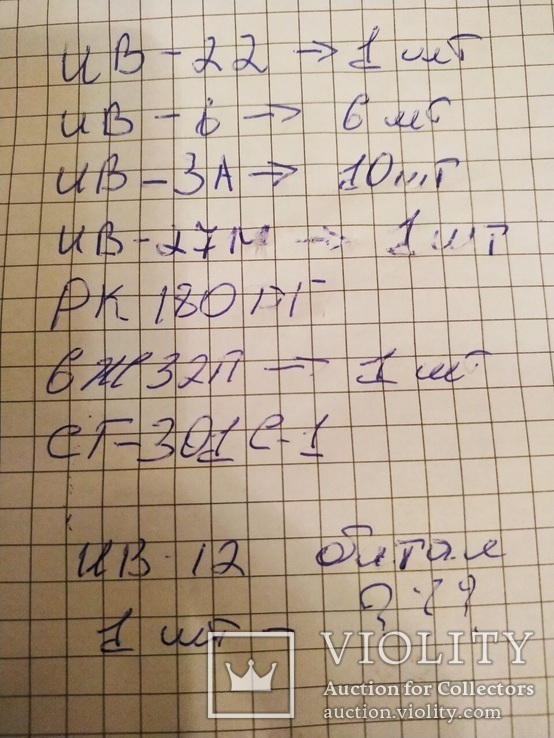 ИВ-22 → 1 шт
ИВ-6 → 6 шт
ИВ-3А → 10шт
ИВ-27М → 1 шт
РК 180
6Ж32П — 1 шт
СГ-301С-1
ИВ-12 битая
???
1 шт -
VIOLITY
Auction for Collectors
auction.violity.com